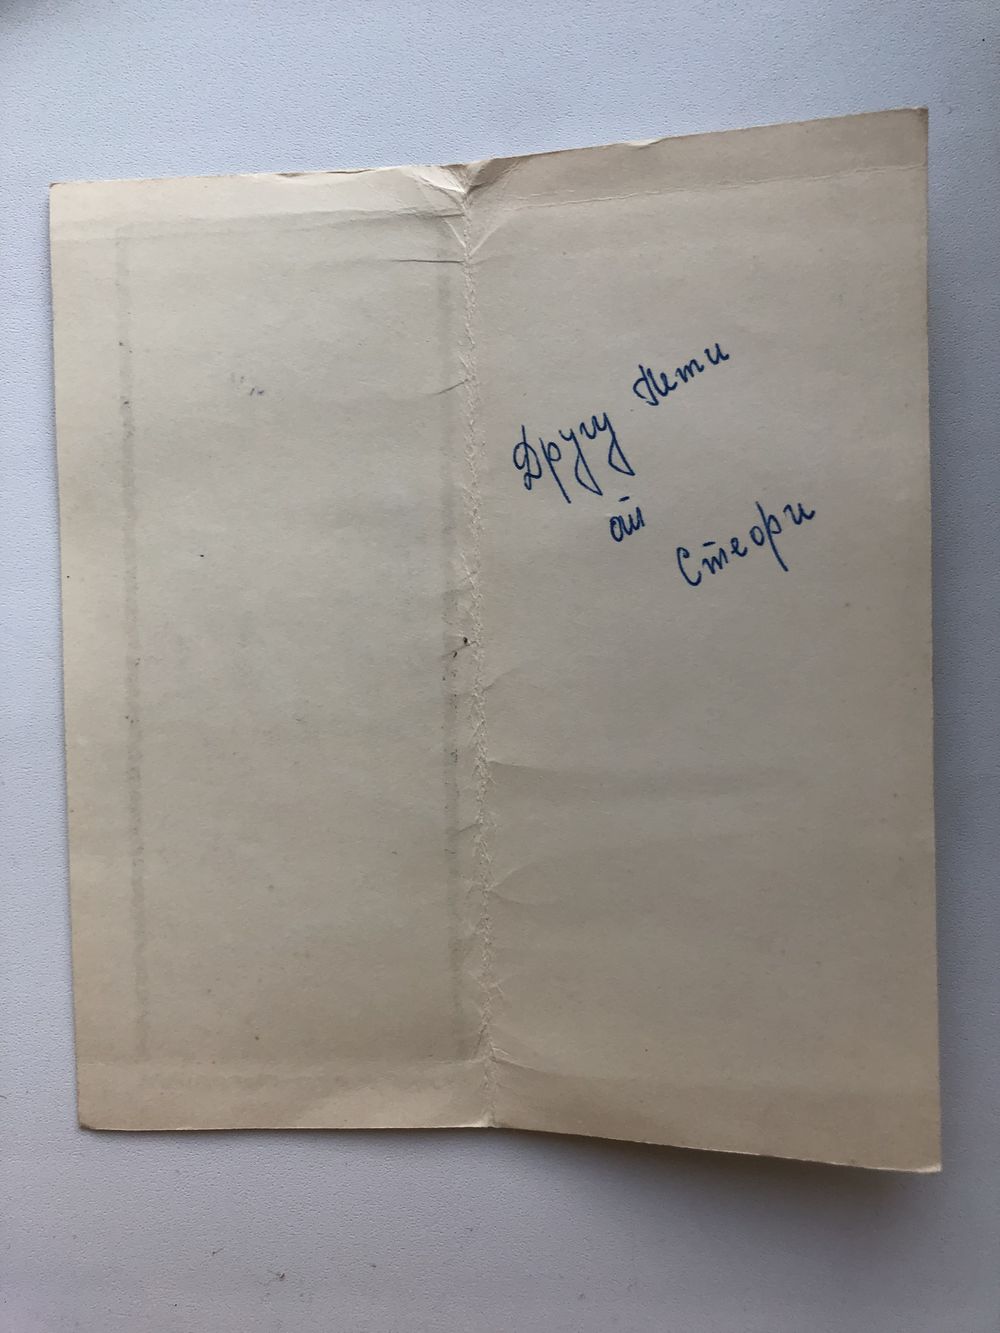 Другу Пети
от
Стеори